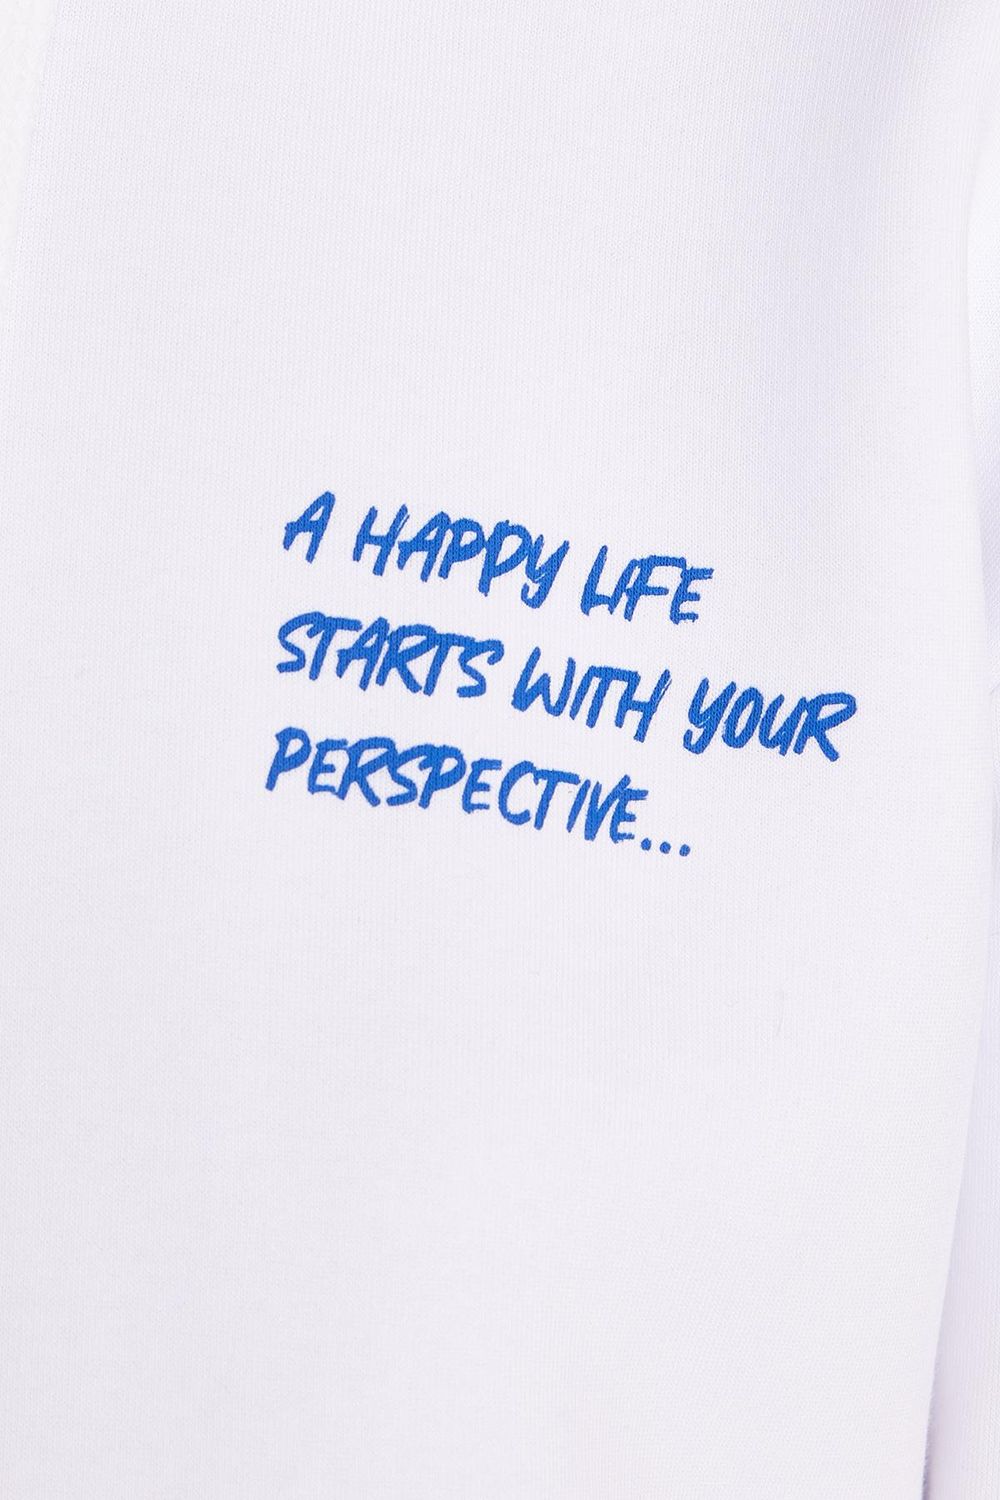 A HAPPY LIFE
STARTS WITH YOUR
PERSPECTIVE...